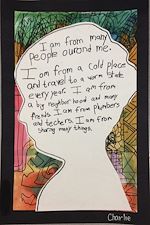 I am from many
People ourond me.
I am from a cold place
and travel to a worm state
every year. I am from
a big neighbor hood and many
friends. I am from plumbers
and techers. I am from
sharing many things.
Charlie